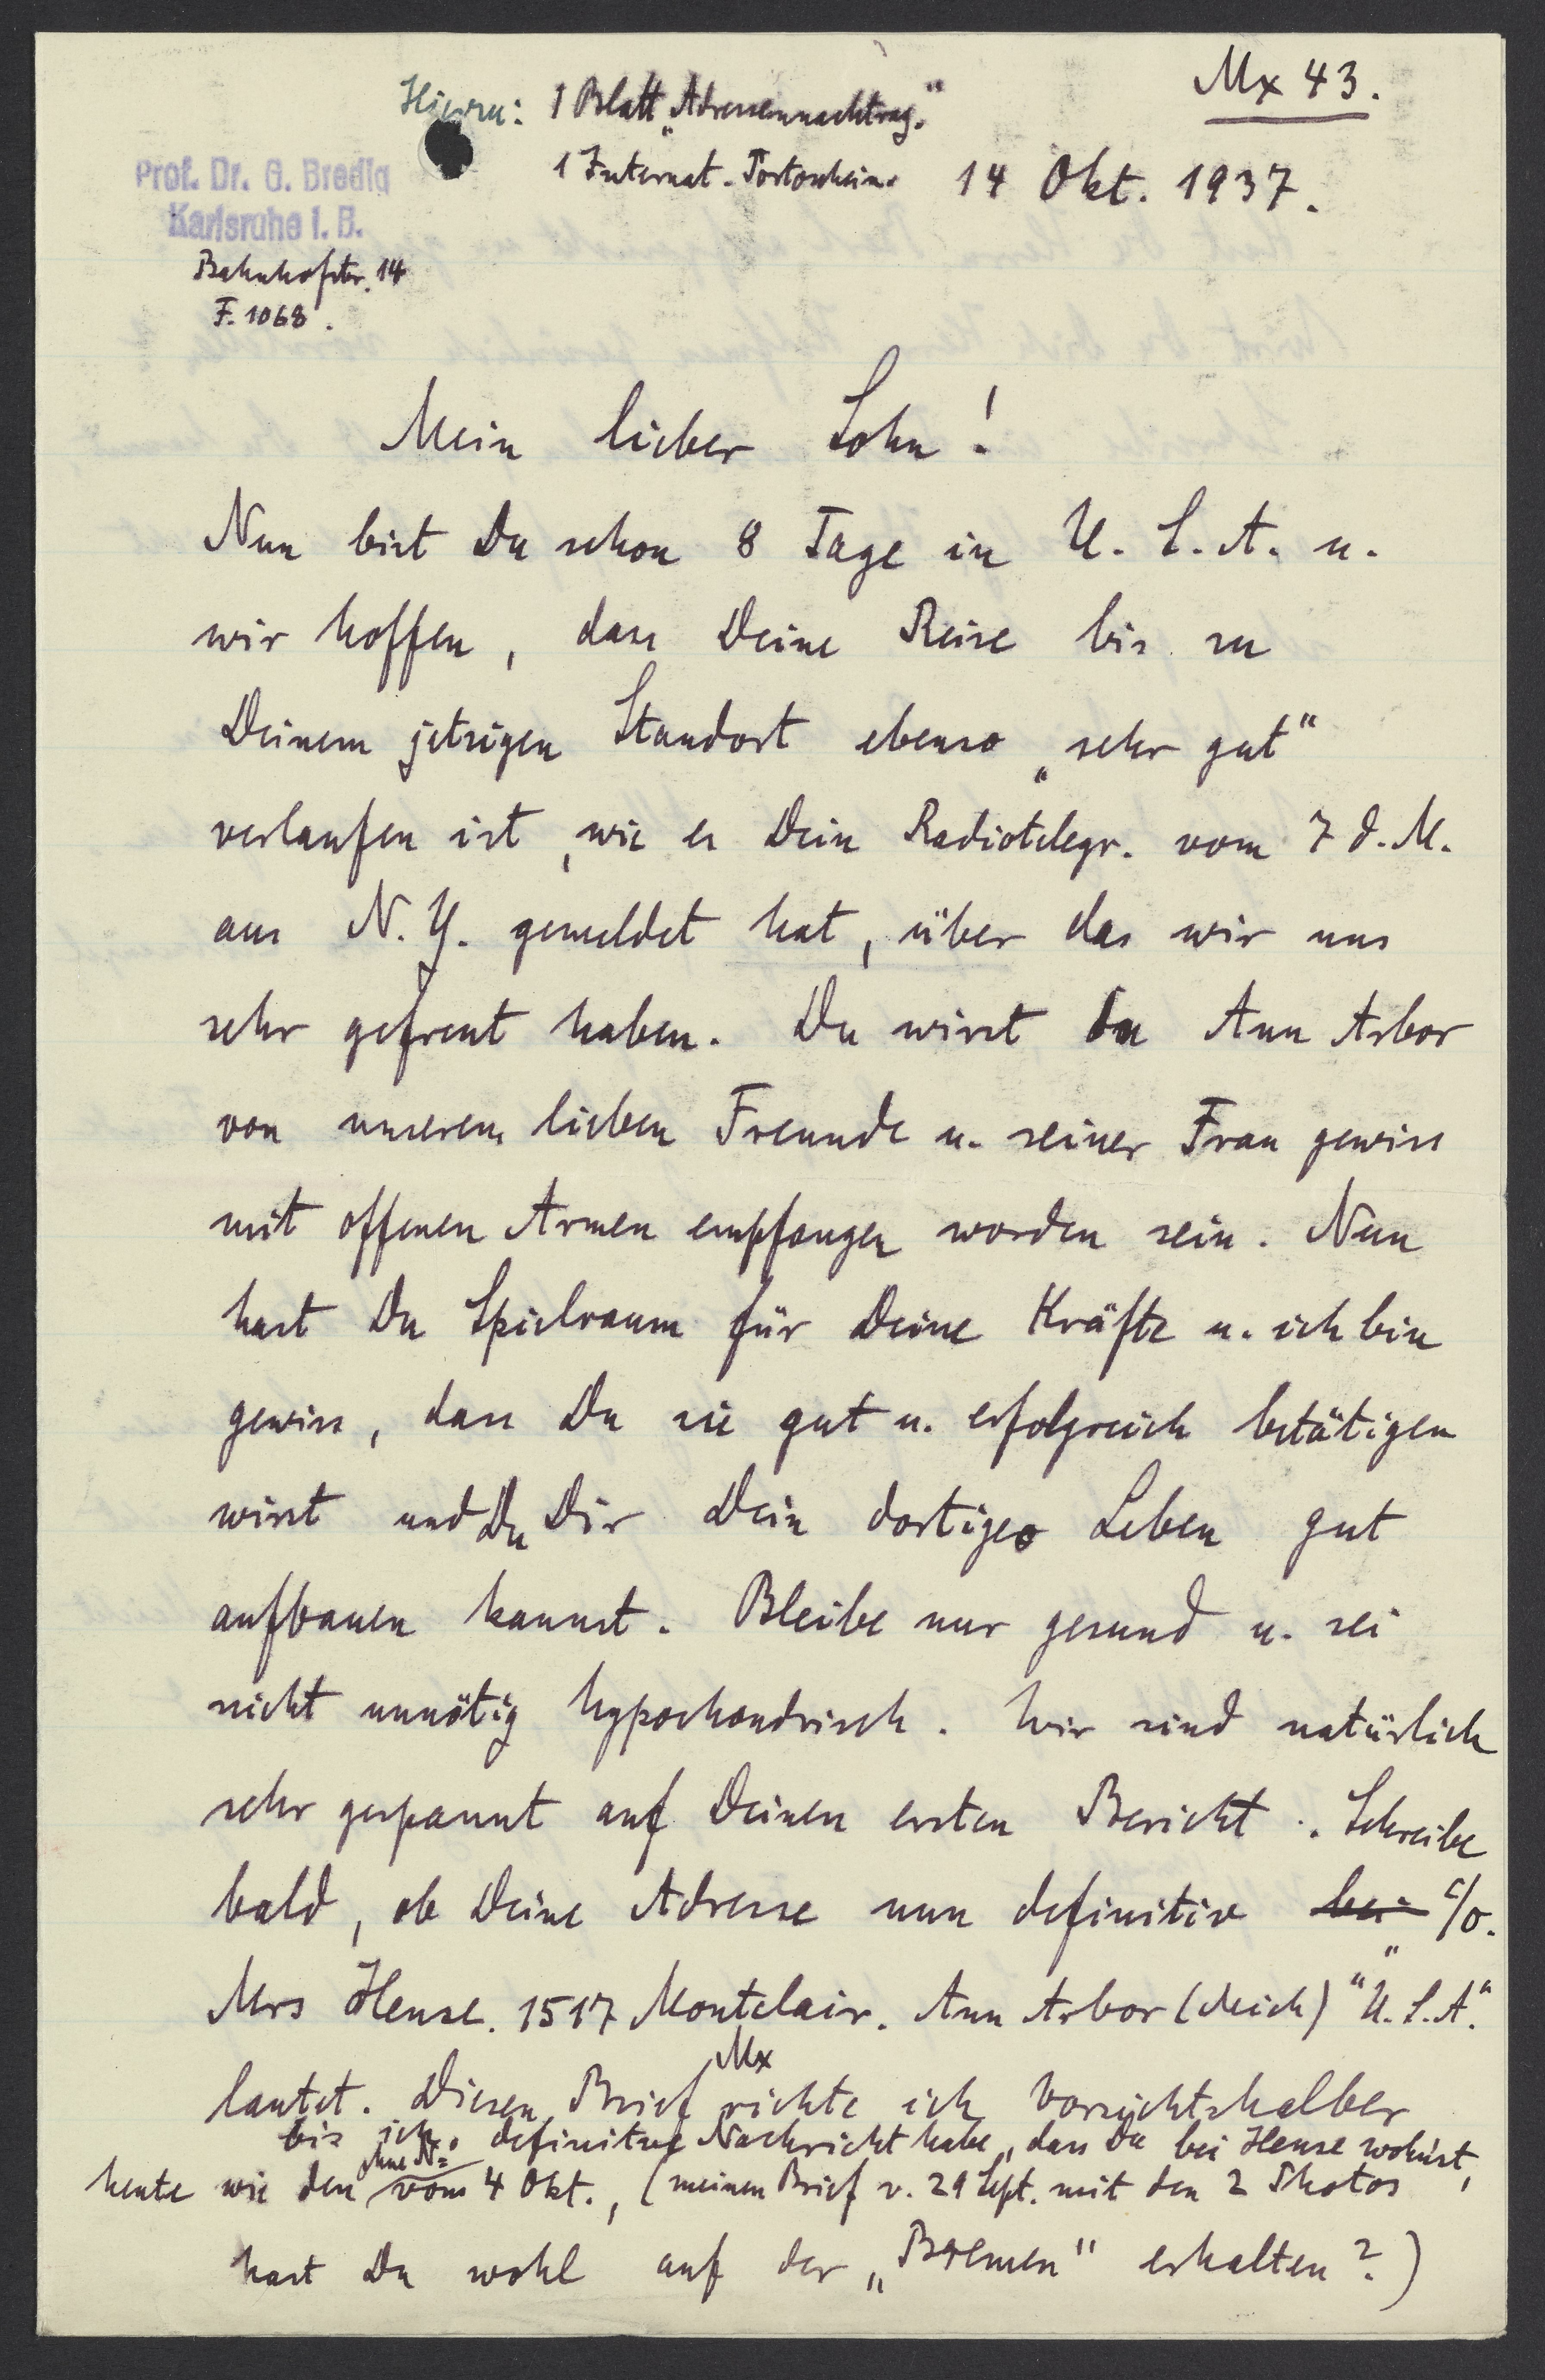 Mx 43.
Hierzu: 1 Blatt „Adressennachtrag."
1 Internat. Portoschein.
14 Okt. 1937.
Prof. Dr. G. Bredig
Karlsruhe i. B.
Bahnhofstr. 14
F. 1068.
Mein lieber Sohn!
Nun bist Du schon 8 Tage in U. S. A. u.
wir hoffen, dass Deine Reise bis zu
Deinem jetzigen Standort ebenso „sehr gut"
verlaufen ist, wie es Dein Radiotelegr. vom 7 d. M.
aus N. Y. gemeldet hat, über das wir uns
sehr gefreut haben. Du wirst in Ann Arbor
von unserem lieben Freunde u. seiner Frau gewiss
mit offenen Armen empfangen worden sein. Nun
hast Du Spielraum für Deine Kräfte u. ich bin
gewiss, dass Du sie gut u. erfolgreich betätigen
wirst und Du Dir Dein dortiges Leben gut
aufbauen kannst. Bleibe nur gesund u. sei
nicht unnötig hypochondrisch. Wir sind natürlich
sehr gespannt auf Deinen ersten Bericht. Schreibe
bald, ob Deine Adresse nun definitiv bei c/o.
Mrs Heuse. 1517 Montclair. Ann Arbor (Mich) "U. S. A."
lautet. Diesen Brief Mx richte ich vorsichtshalber
bis ich definitive Nachricht habe, dass Du bei Heuse wohnst,
heute wie den ohne No vom 4 Okt., (meinen Brief v. 29 Sept. mit den 2 Photos
hast Du wohl auf der „Bremen" erhalten?)